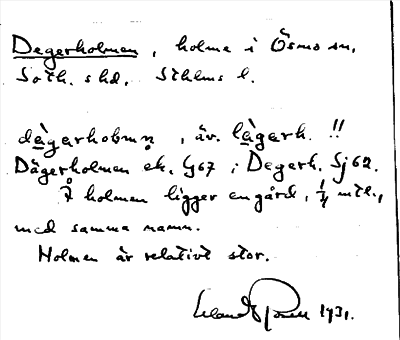 Degerholmen, holme i Ösmo sn,
Soth. shd, Sthlms l.
dä̀garholmn̥, äv. lä̀garh. !!
Dägerholmen ek. G67; Degerh. Sj62.
Å holmen ligger en gård, 1/4 mtl.,
med samma namn.
Holmen är relativt stor.
Erland Rosell 1931.